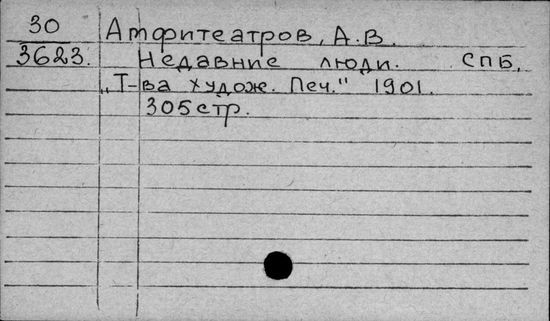 30 Амфитеатров, А.В.
3623. Недавние люди. СПБ,
„Т-ва худож. Печ." 1901.
305 стр.